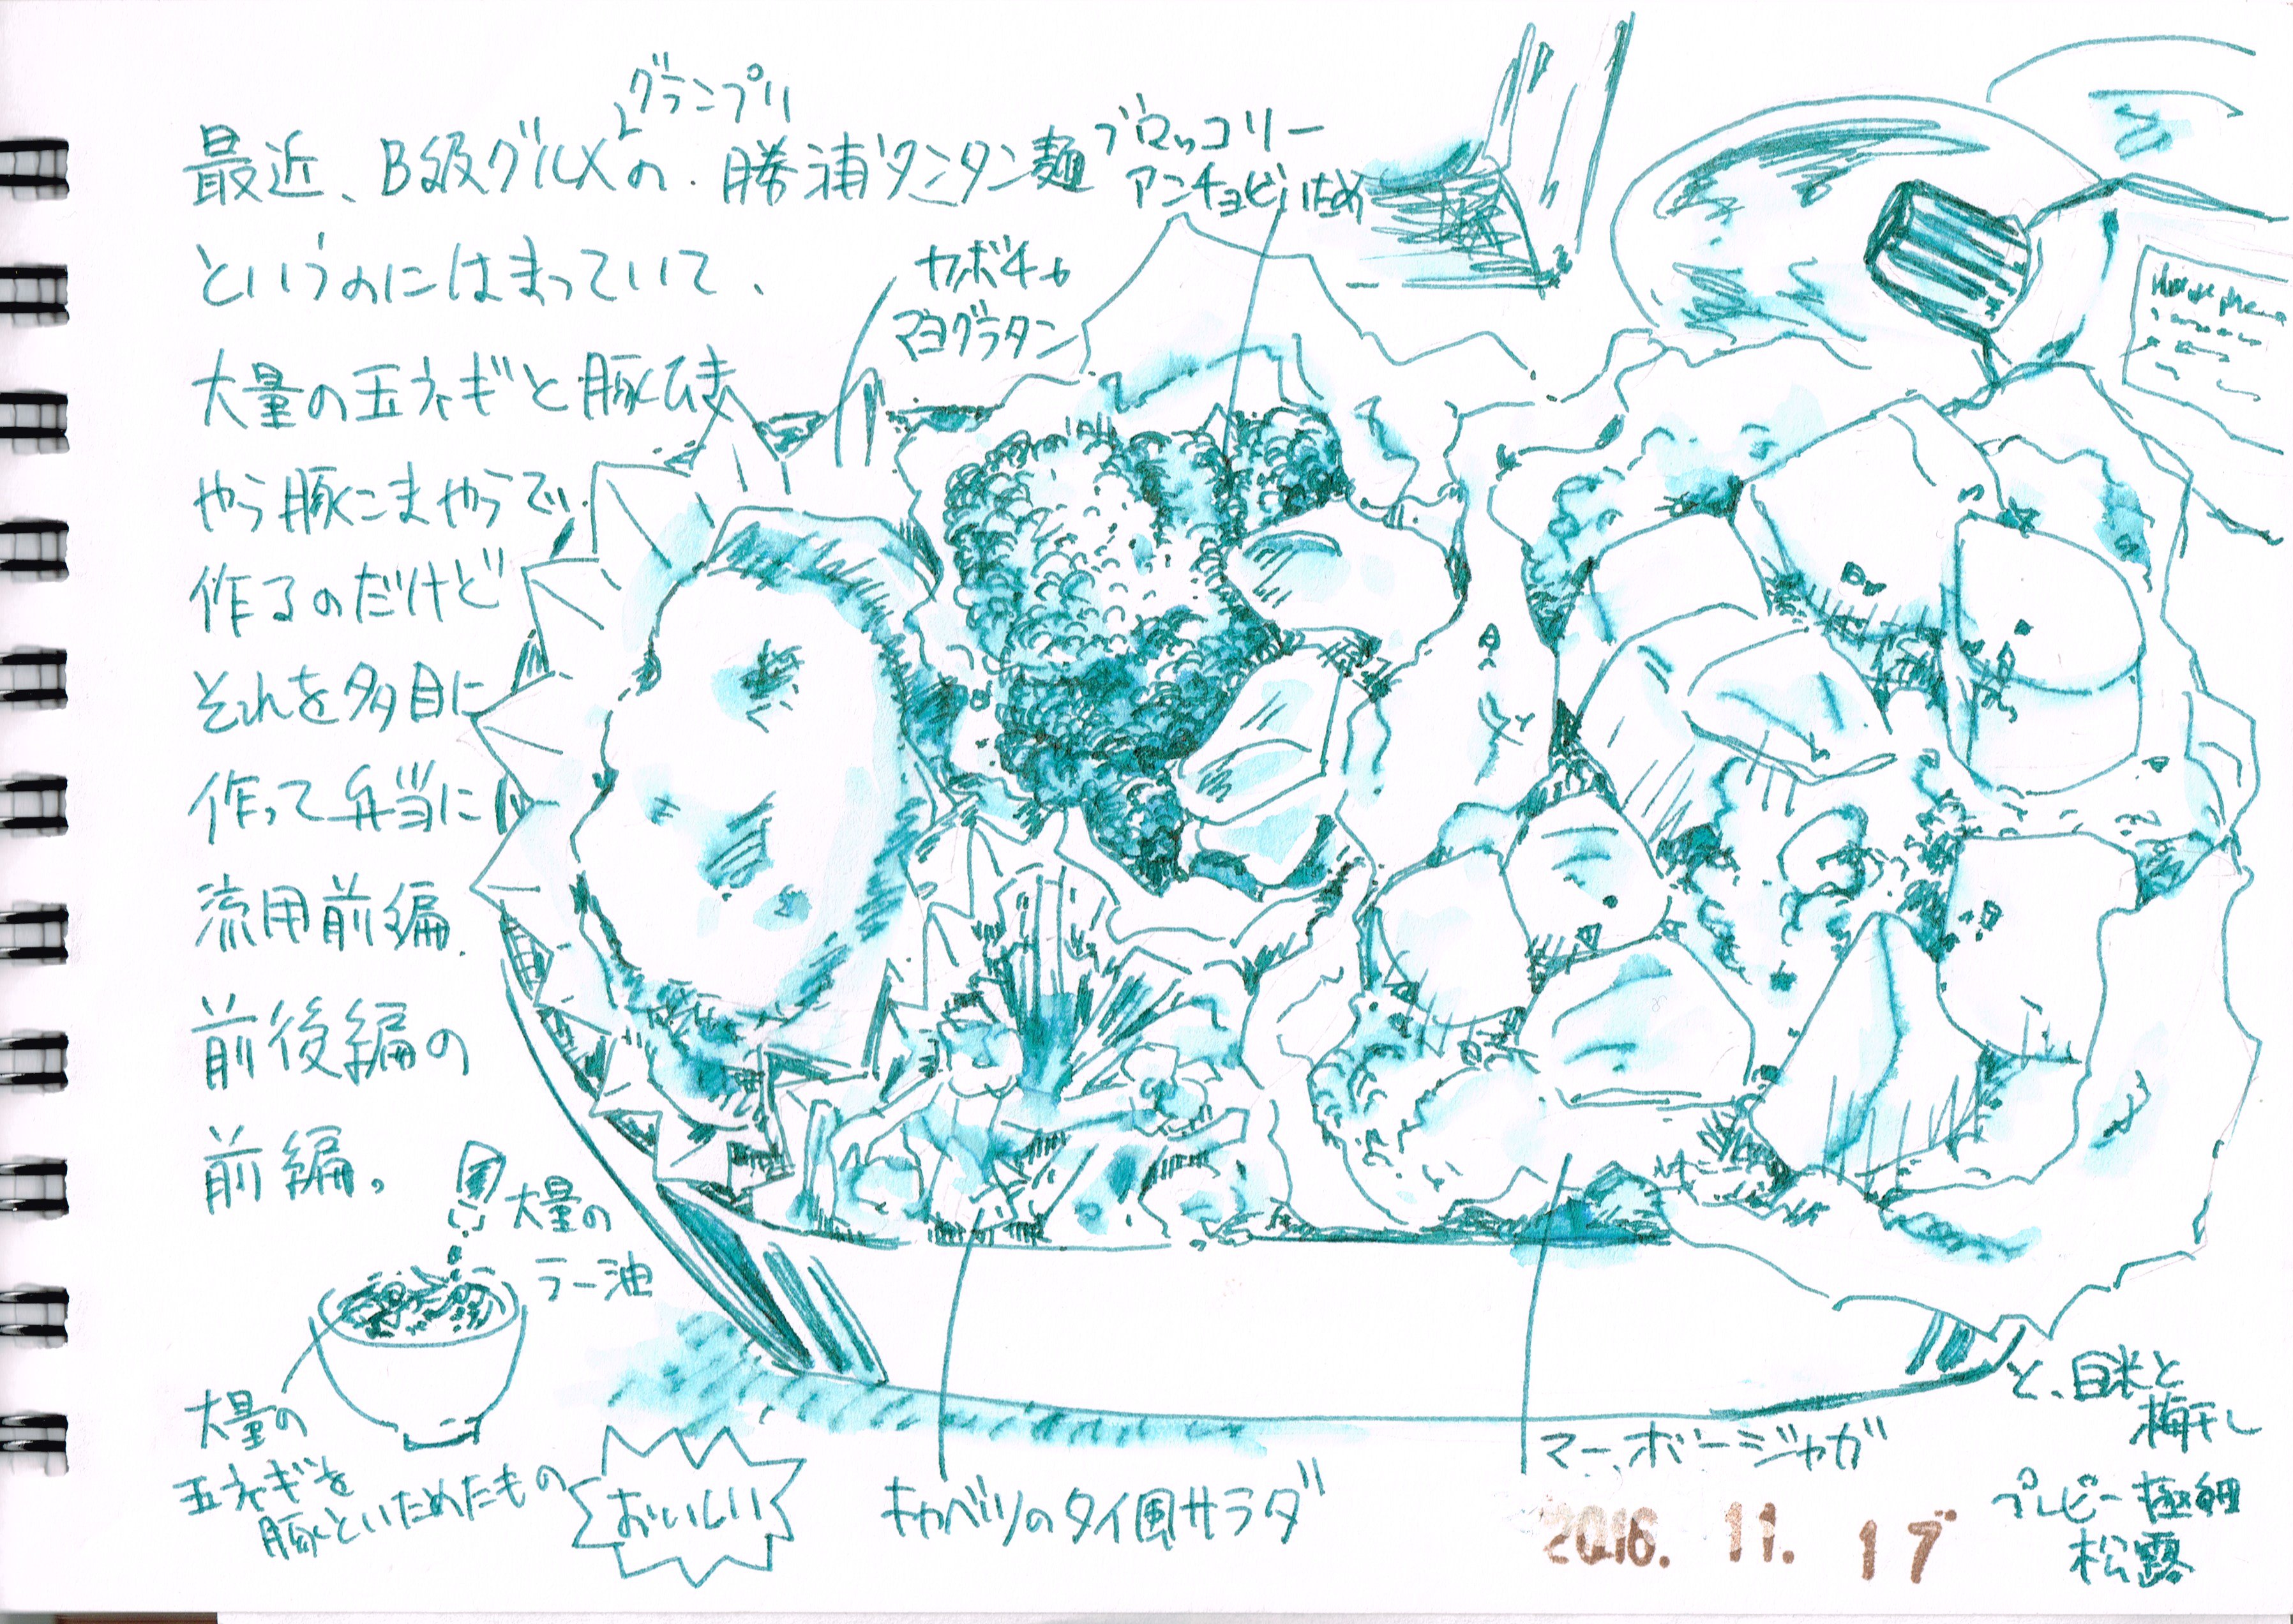 最近、B級グルメグランプリの、勝浦タンタン麺
というのにはまっていて、
大量の玉ネギと豚ひき
やら豚こまやらで、
作るのだけど
それを多目に
作って弁当に
流用前編。
前後編の
前編。
ブロッコリー
アンチョビいため
カボチャ
マヨグラタン
大量の
ラー油
大量の
玉ネギを
豚といためたもの
おいしい
キャベツのタイ風サラダ
マーボージャガ
と、白米と
梅干し
プレピー極細
松露
2016. 11. 17